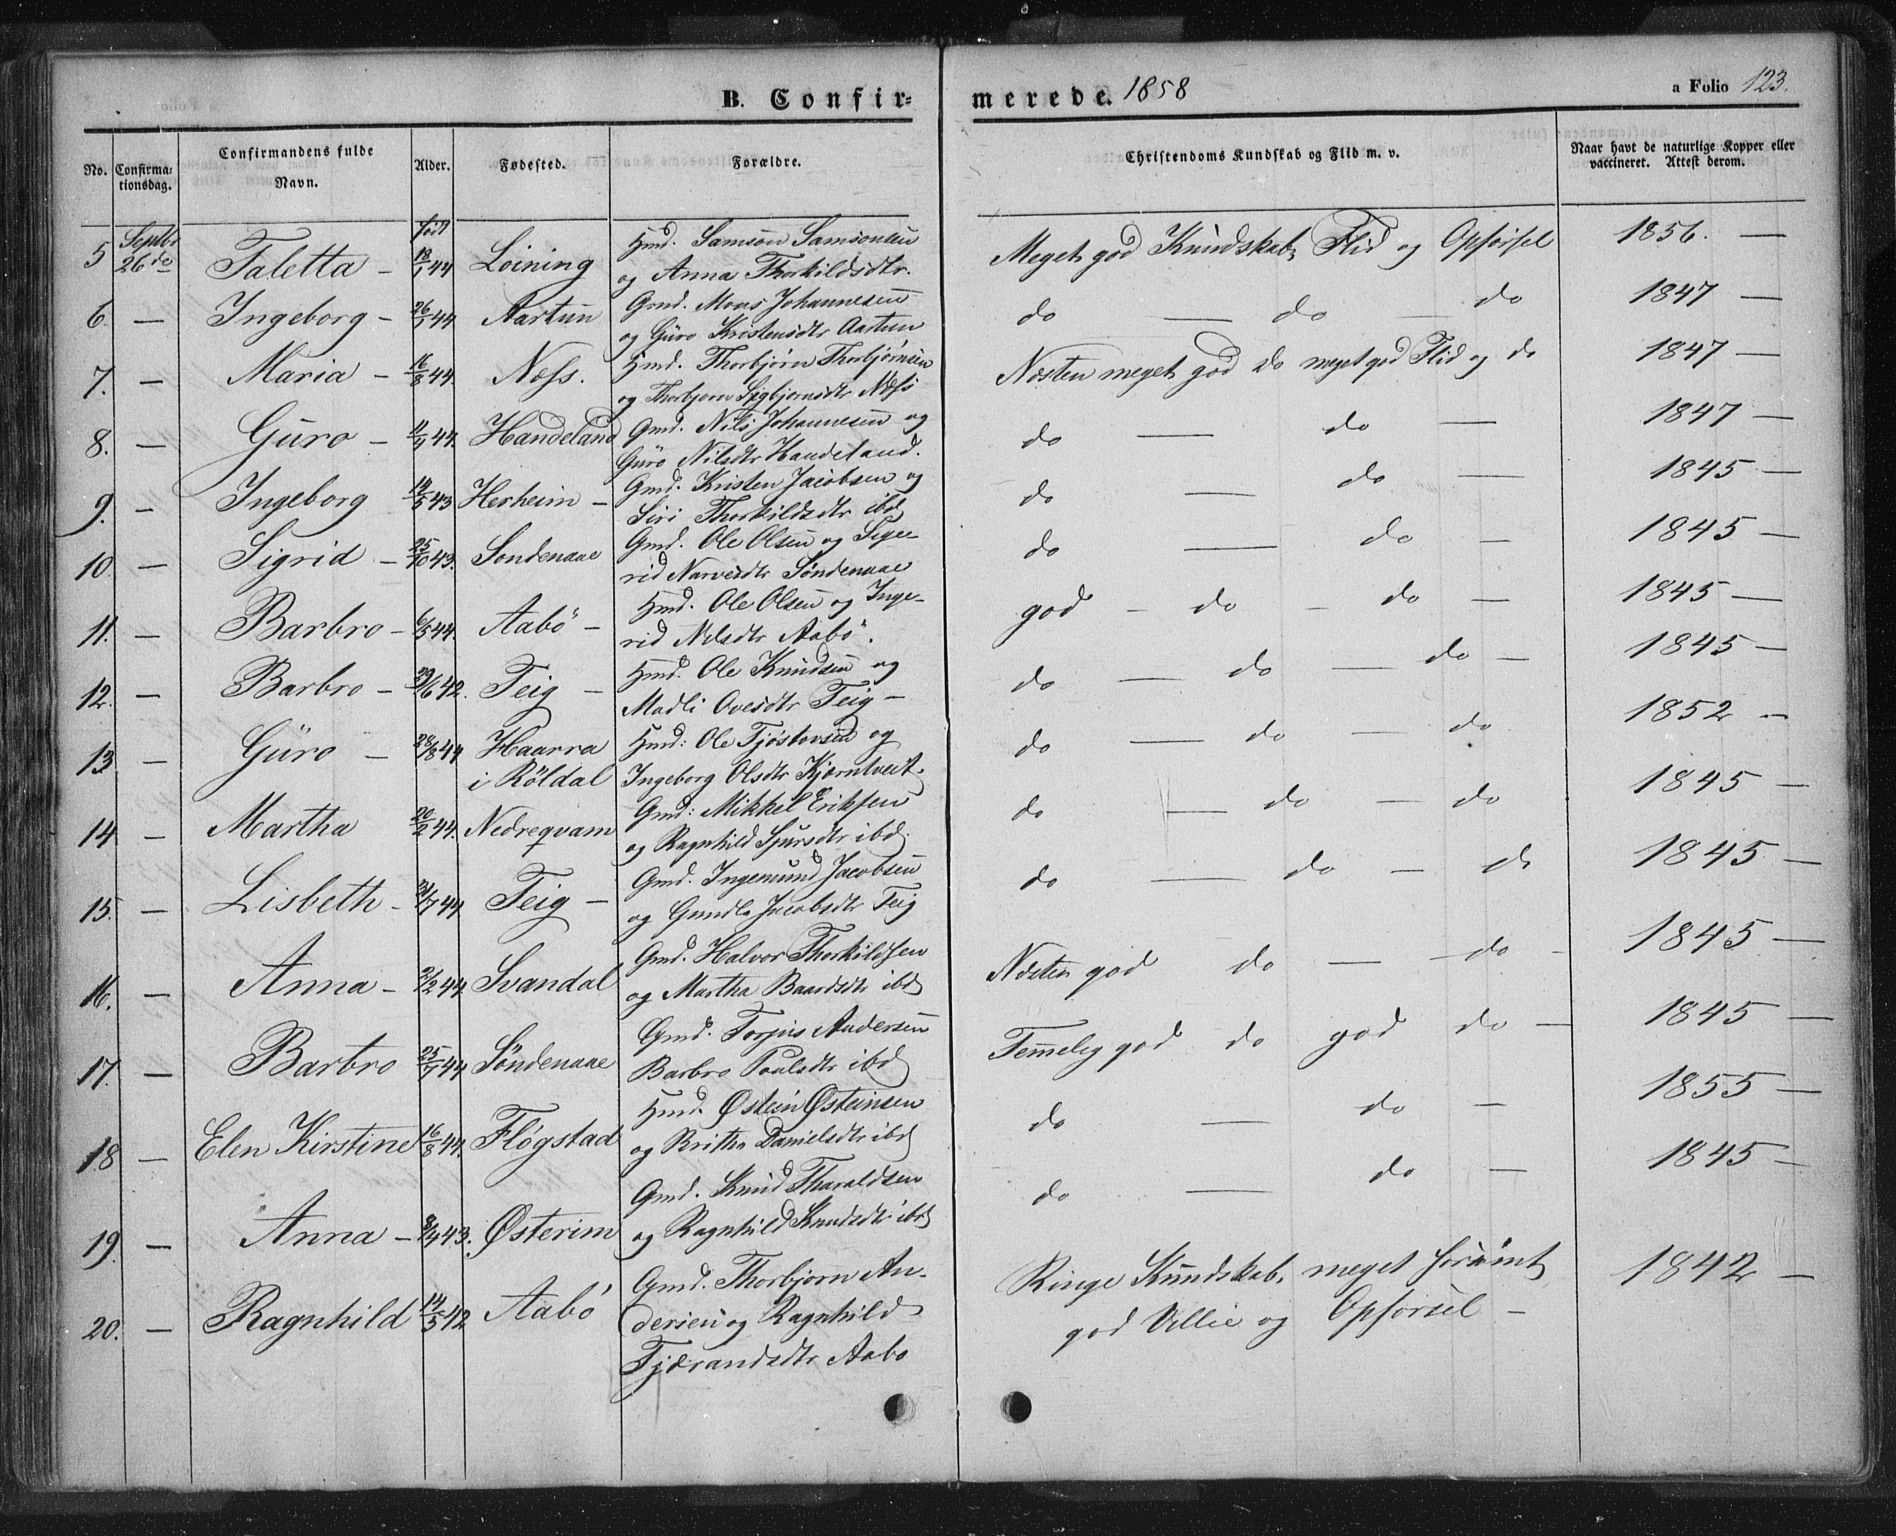 B. Confir-
merede. 1858
a Folio 123.
No.
Confirma-
tionsdag.
Confirmandens fulde
Navn.
Alder.
Fødested.
Forældre.
Christendoms Kundskab og Flid m. v.
Naar havt de naturlige Kopper eller
vaccineret. Attest derom.
5 Septbr 26de Taletta – født 18/1 44 Løining Hmd. Samson Samsonsen Meget god Kundskab, Flid og Opførsel 1856. —
og Anna Thorkildsdtr.
6 — Ingeborg – 26/1 44 Aartun Gmd. Mons Johannesen do — do — do 1847 —
og Guro Kristensdtr Aartun
7. — Maria – 16/8 44. Næss. Hmd. Thorbjørn Thorbjørnsen Næsten meget god do meget god Flid og do 1847 —
og Thorbjørn Sigbjørnsdtr Næss
8. — Guro – 11/9 44. Handeland Gmd. Nils Johannesen og do — do — 1847 —
Guro Nilsdtr Handeland.
9. — Ingeborg 14/5 43 Herheim – Gmd. Kristen Jacobsen og do — do — 1845 —
Siri Thorkildsdtr ibd
10. — Sigrid – 25/10 43. Sondenaae Gmd. Ole Olsen og Sige- do — do — 1845 —
rid Narvesdtr Søndenaae
11. — Barbro – 6/5 44. Aabö – Hmd. Ole Olsen og Inge- god – do – do — 1845 —
rid Nilsdtr Aabö.
12. — Barbro – 29/6 42. Teig – Hmd. Ole Knudsen og do — do — do – 1845 —
Madli Ovesdtr Teig –
13. — Guro – 28/8 44 Haarra Hmd: Ole Tjøstovsen og do — do — do 1852 —
i Röldal Ingeborg Olsdtr Kjærntveit.
14. — Martha 20/2 44. Nedreqvam Gmd: Mikkel Eriksen do — do — do 1845 —
og Ragnhild Sjursdtr ibd.
15. — Lisbeth – 31/7 44 Teig – Gmd. Ingemund Jacobsen do — do — do 1845 —
og Gundla Jacobsdtr Teig
16. — Anna – 2/2 44 Svandal Gmd. Halvor Thorkildsen Næsten god do — do - 1845 —
og Martha Baardsdtr ibd
17. — Barbro 25/7 44 Söndenaae Gmd. Torjus Andersen Temelig god do god do — 1845 —
Barbro Poulsdtr ibd
18 — Elen Kirstine 16/8 44. Fløgstad Hmd. Østein Østeinsen do — do – 1855 —
og Britha Danielsdtr ibd
19. — Anna – 8/4 43. Østerim Gmd. Knud Tharaldsen do — do — 1845 —
og Ragnhild Knudsdtr ibd
20. — Ragnhild 14/5 42 Aabö Gmd. Thorbjørn An- Ringe Kundskab, meget forsømt, 1842 —
dersen og Ragnhild god Villie og Opførsel –
Tjærandsdtr Aabo